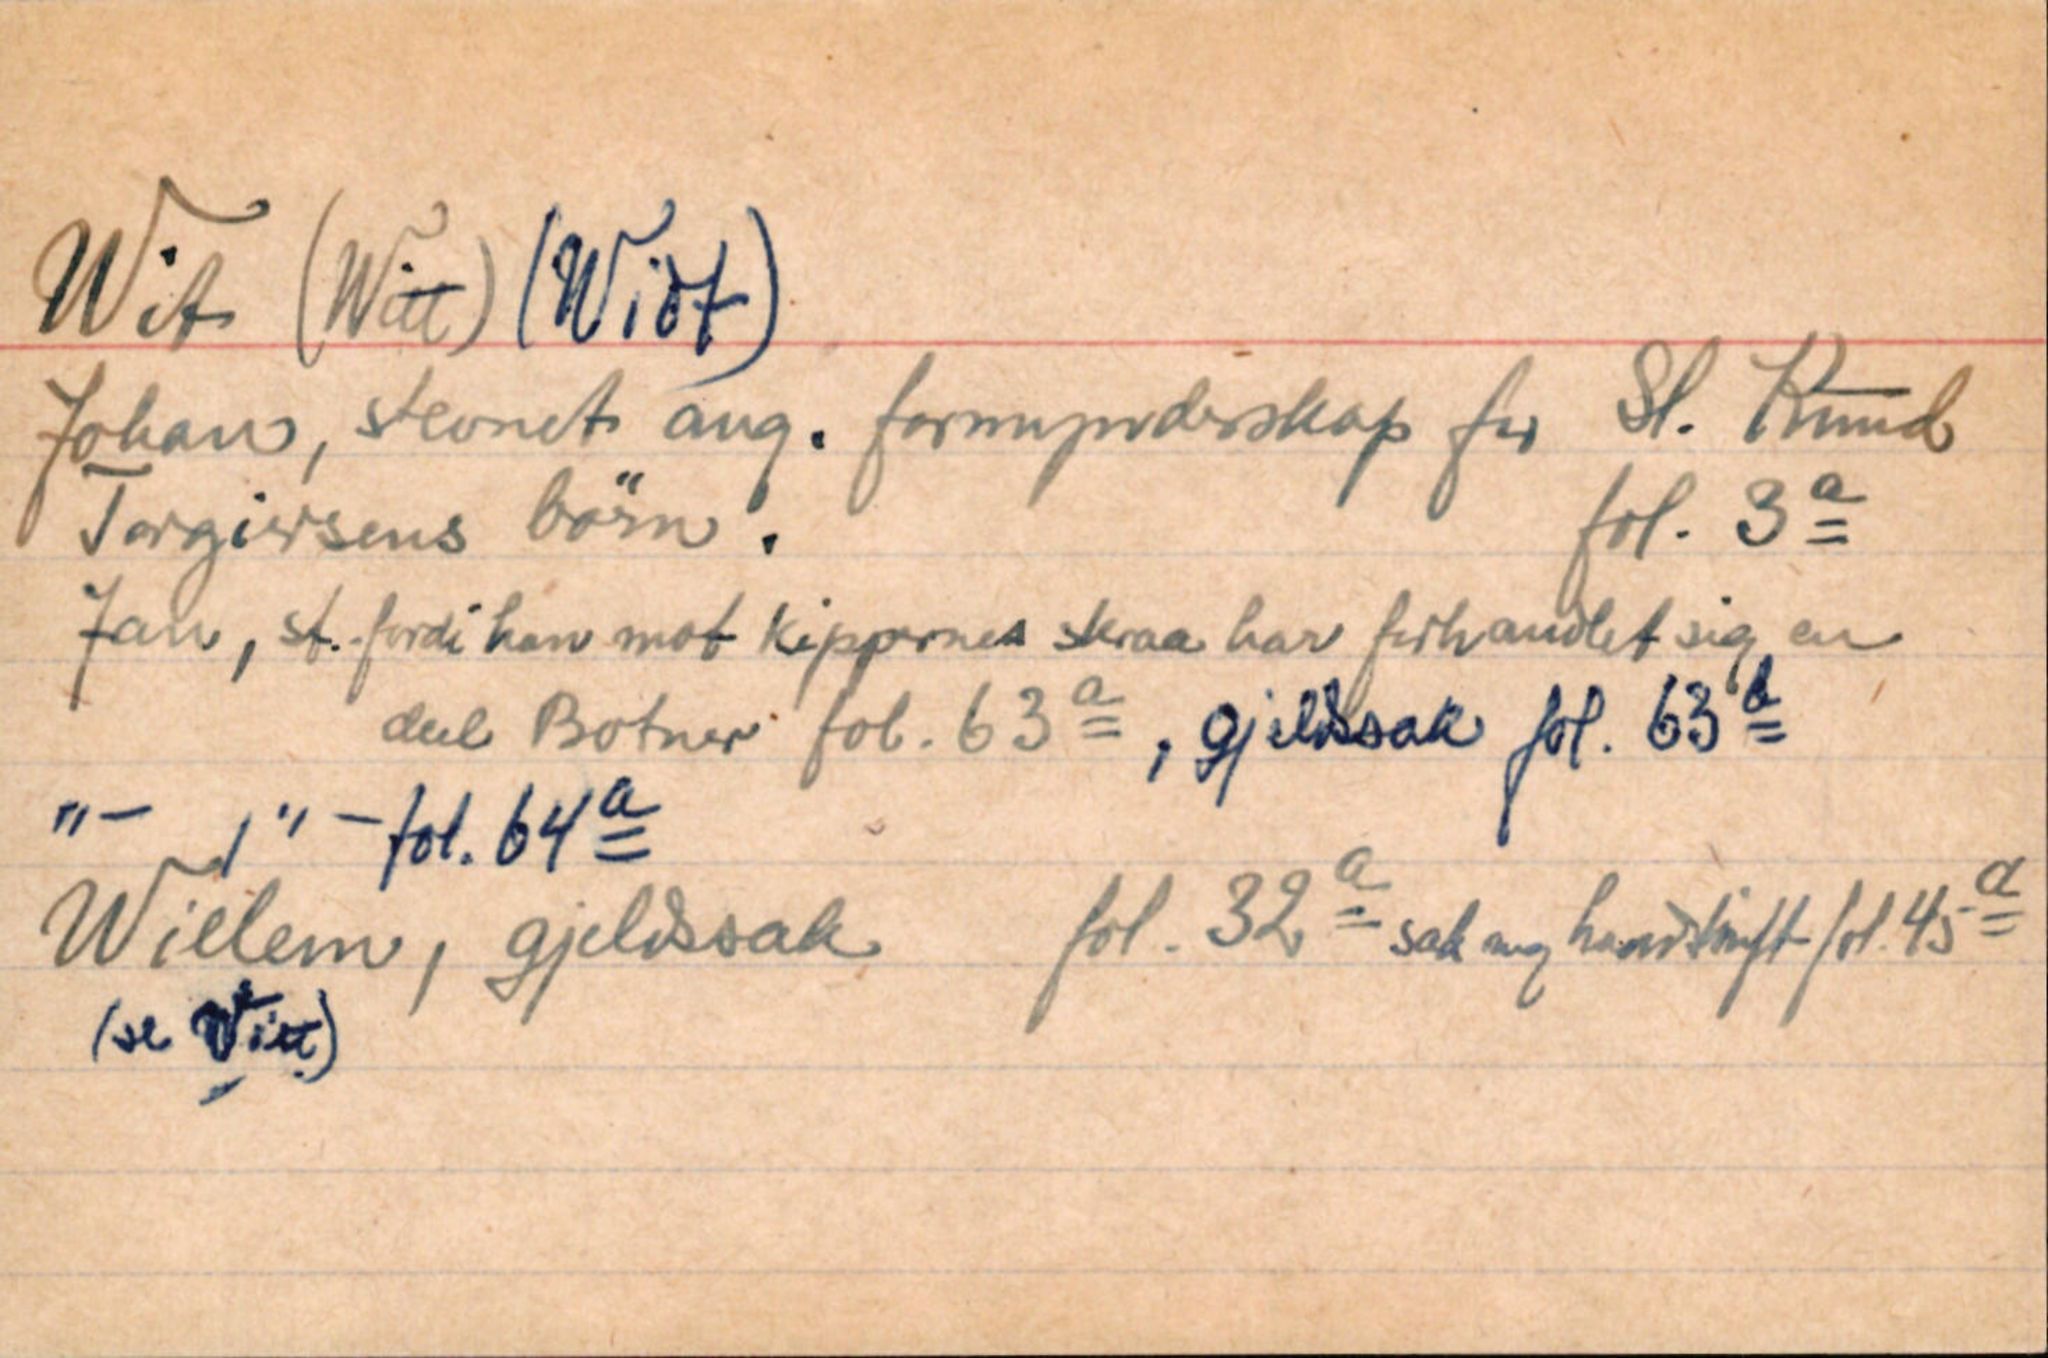 Wit (Witt) (Widt)
Johan, stevnet ang. formynderskap for Sl. Knud
Torgiersens börn. fol. 3a
Jan, st. fordi han mot kippernes skraa har forhandlet sig en
deel Botner fol. 63a, gjeldssak fol. 63b
"- , " - fol. 64a
Willem, gjeldssak fol. 32a sak ang haandskrift fol. 45a
(se Witt)